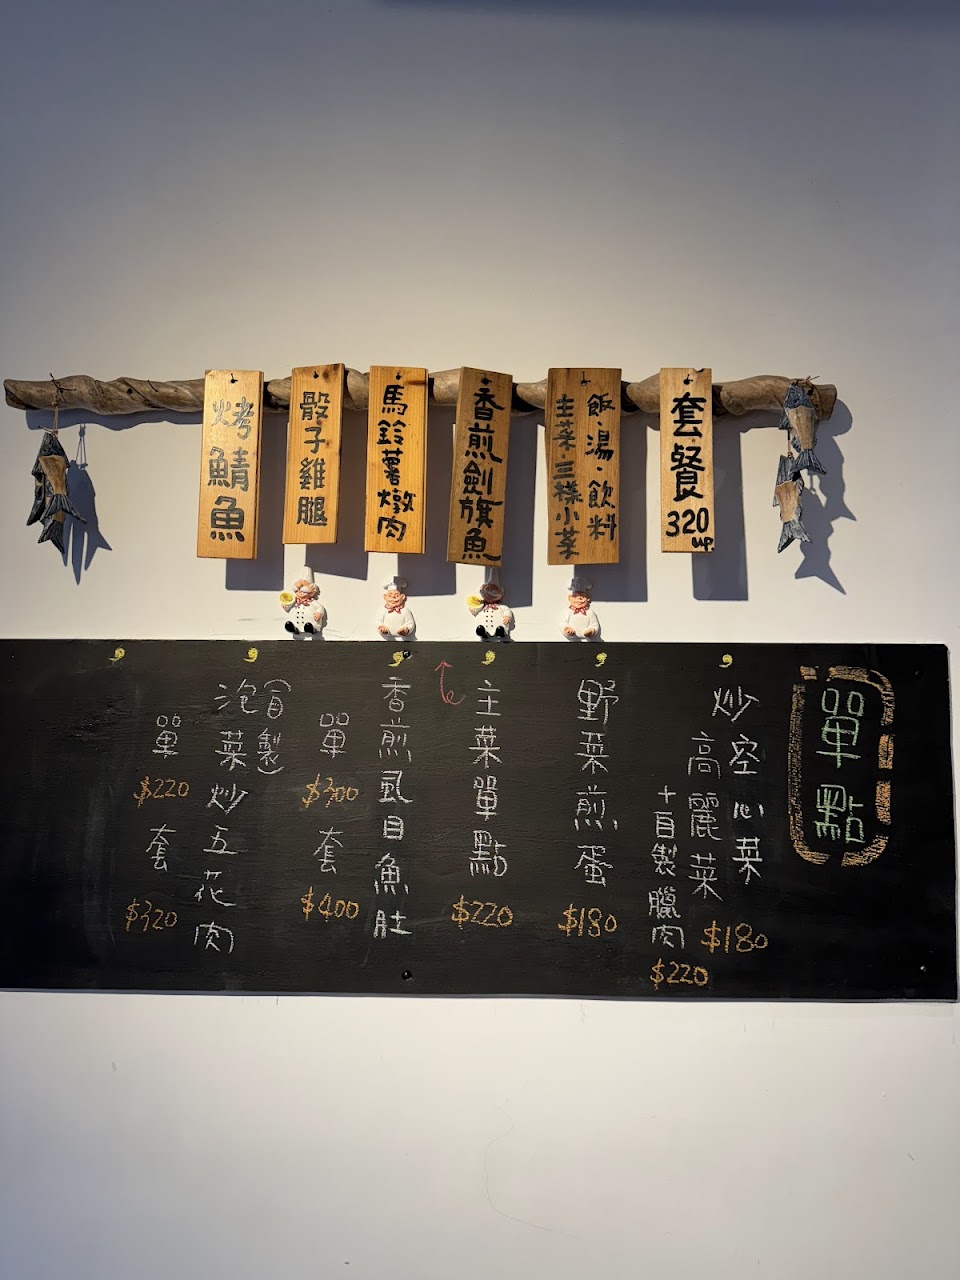 套餐
320
up
飯·湯·飲料
主菜三樣小菜
香煎劍旗魚
馬鈴薯燉肉
骰子雞腿
烤鯖魚
單點
炒空心菜
高麗菜
$180
十自製臘肉
$220
野菜煎蛋
$180
主菜單點
$220
香煎虱目魚肚
單
$300
套
$400
(自製)
泡菜炒五花肉
單
$220
套
$320